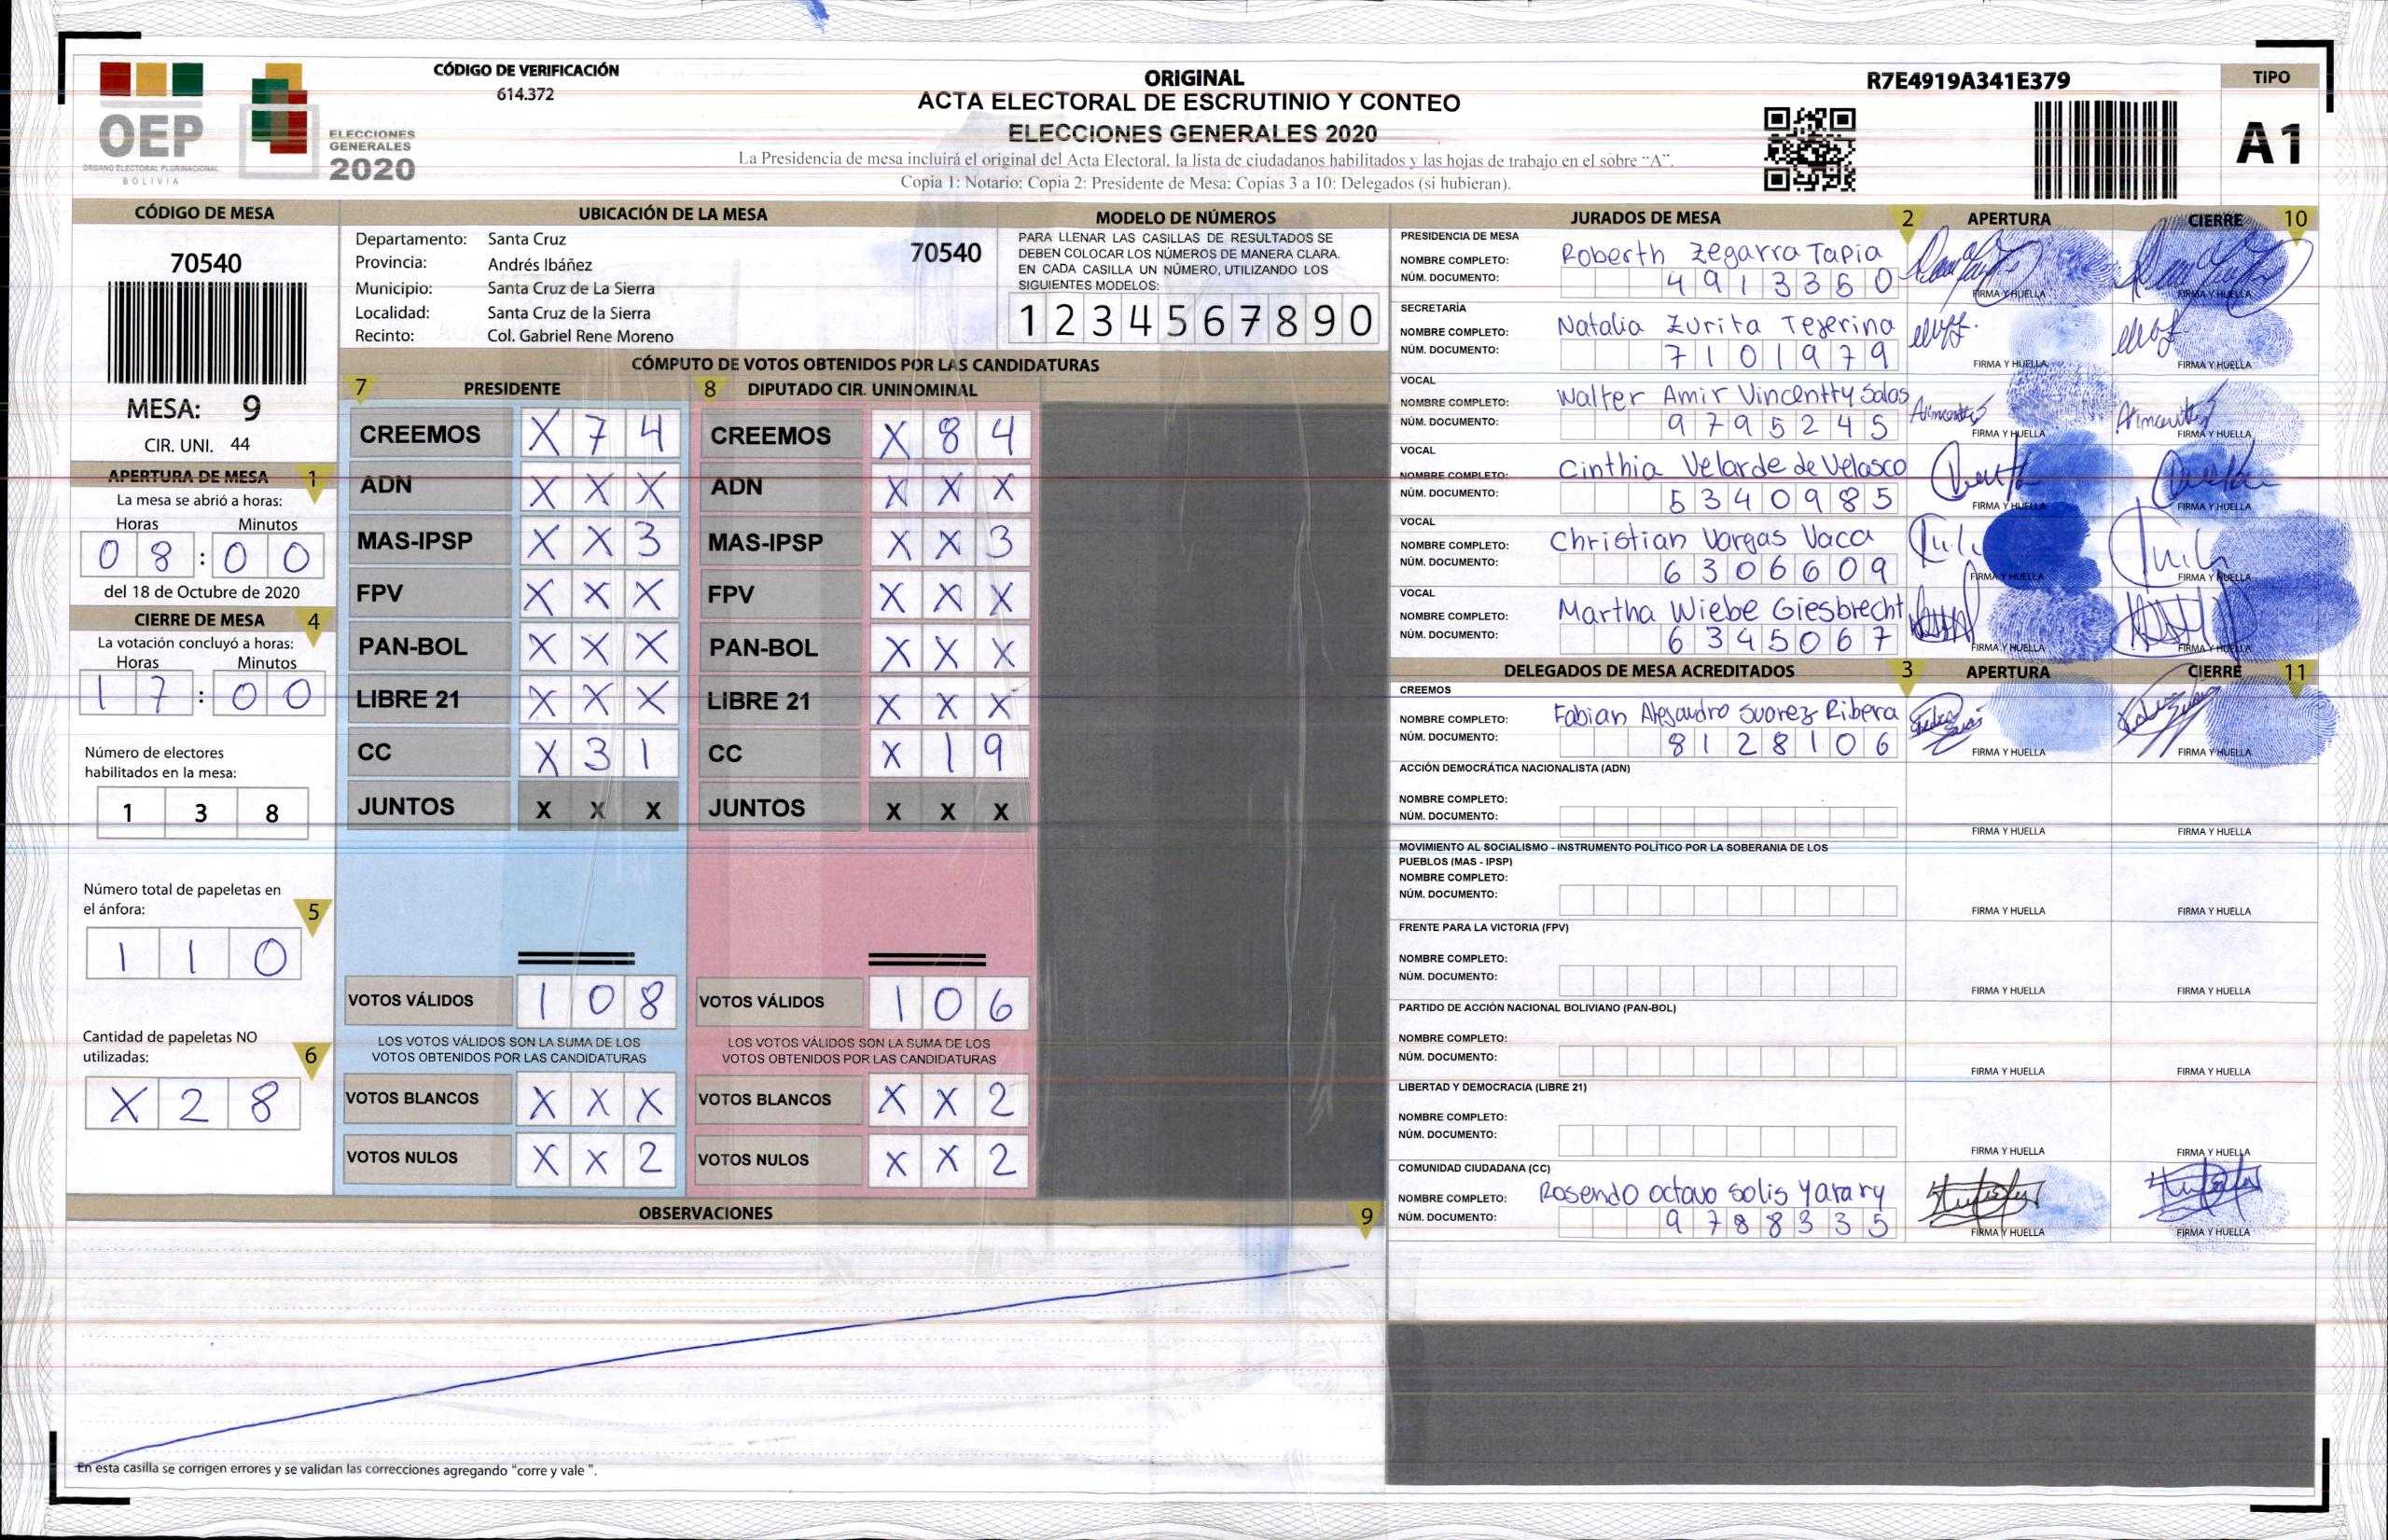 CÓDIGO DE VERIFICACIÓN
614.372
OEP
ÓRGANO ELECTORAL PLURINACIONAL
BOLIVIA
ELECCIONES
GENERALES
2020
ORIGINAL
ACTA ELECTORAL DE ESCRUTINIO Y CONTEO
ELECCIONES GENERALES 2020
La Presidencia de mesa incluirá el original del Acta Electoral, la lista de ciudadanos habilitados y las hojas de trabajo en el sobre "A".
Copia 1: Notario; Copia 2: Presidente de Mesa; Copias 3 a 10: Delegados (si hubieran).
R7E4919A341E379
TIPO
A1
CÓDIGO DE MESA
70540
MESA: 9
CIR. UNI. 44
APERTURA DE MESA 1
La mesa se abrió a horas:
Horas Minutos
0 8 : 0 0
del 18 de Octubre de 2020
CIERRE DE MESA 4
La votación concluyó a horas:
Horas Minutos
1 7 : 0 0
Número de electores
habilitados en la mesa:
1 3 8
Número total de papeletas en
el ánfora: 5
1 1 0
Cantidad de papeletas NO
utilizadas: 6
X 2 8
UBICACIÓN DE LA MESA
Departamento: Santa Cruz 70540
Provincia: Andrés Ibáñez
Municipio: Santa Cruz de La Sierra
Localidad: Santa Cruz de la Sierra
Recinto: Col. Gabriel Rene Moreno
MODELO DE NÚMEROS
PARA LLENAR LAS CASILLAS DE RESULTADOS SE
DEBEN COLOCAR LOS NÚMEROS DE MANERA CLARA.
EN CADA CASILLA UN NÚMERO, UTILIZANDO LOS
SIGUIENTES MODELOS:
1 2 3 4 5 6 7 8 9 0
CÓMPUTO DE VOTOS OBTENIDOS POR LAS CANDIDATURAS
7 PRESIDENTE 8 DIPUTADO CIR. UNINOMINAL
CREEMOS X 7 4 CREEMOS X 8 4
ADN X X X ADN X X X
MAS-IPSP X X 3 MAS-IPSP X X 3
FPV X X X FPV X X X
PAN-BOL X X X PAN-BOL X X X
LIBRE 21 X X X LIBRE 21 X X X
CC X 3 1 CC X 1 9
JUNTOS X X X JUNTOS X X X
VOTOS VÁLIDOS 1 0 8 VOTOS VÁLIDOS 1 0 6
LOS VOTOS VÁLIDOS SON LA SUMA DE LOS LOS VOTOS VÁLIDOS SON LA SUMA DE LOS
VOTOS OBTENIDOS POR LAS CANDIDATURAS VOTOS OBTENIDOS POR LAS CANDIDATURAS
VOTOS BLANCOS X X X VOTOS BLANCOS X X 2
VOTOS NULOS X X 2 VOTOS NULOS X X 2
OBSERVACIONES 9
En esta casilla se corrigen errores y se validan las correcciones agregando "corre y vale ".
JURADOS DE MESA 2 APERTURA CIERRE 10
PRESIDENCIA DE MESA
NOMBRE COMPLETO: Roberth Zegarra Tapia
NÚM. DOCUMENTO: 4 9 1 3 3 6 0
FIRMA Y HUELLA FIRMA Y HUELLA
SECRETARÍA
NOMBRE COMPLETO: Natalia Zurita Tejerina
NÚM. DOCUMENTO: 7 1 0 1 9 7 9
FIRMA Y HUELLA FIRMA Y HUELLA
VOCAL
NOMBRE COMPLETO: Walter Amir Vincentty Salas
NÚM. DOCUMENTO: 9 7 9 5 2 4 5
FIRMA Y HUELLA FIRMA Y HUELLA
VOCAL
NOMBRE COMPLETO: Cinthia Velarde de Velasco
NÚM. DOCUMENTO: 5 3 4 0 9 8 5
FIRMA Y HUELLA FIRMA Y HUELLA
VOCAL
NOMBRE COMPLETO: Christian Vargas Vaca
NÚM. DOCUMENTO: 6 3 0 6 6 0 9
FIRMA Y HUELLA FIRMA Y HUELLA
VOCAL
NOMBRE COMPLETO: Martha Wiebe Giesbrecht
NÚM. DOCUMENTO: 6 3 4 5 0 6 7
FIRMA Y HUELLA FIRMA Y HUELLA
DELEGADOS DE MESA ACREDITADOS 3 APERTURA CIERRE 11
CREEMOS
NOMBRE COMPLETO: Fabian Alejandro Suarez Ribera
NÚM. DOCUMENTO: 8 1 2 8 1 0 6
FIRMA Y HUELLA FIRMA Y HUELLA
ACCIÓN DEMOCRÁTICA NACIONALISTA (ADN)
NOMBRE COMPLETO:
NÚM. DOCUMENTO:
FIRMA Y HUELLA FIRMA Y HUELLA
MOVIMIENTO AL SOCIALISMO - INSTRUMENTO POLÍTICO POR LA SOBERANIA DE LOS
PUEBLOS (MAS - IPSP)
NOMBRE COMPLETO:
NÚM. DOCUMENTO:
FIRMA Y HUELLA FIRMA Y HUELLA
FRENTE PARA LA VICTORIA (FPV)
NOMBRE COMPLETO:
NÚM. DOCUMENTO:
FIRMA Y HUELLA FIRMA Y HUELLA
PARTIDO DE ACCIÓN NACIONAL BOLIVIANO (PAN-BOL)
NOMBRE COMPLETO:
NÚM. DOCUMENTO:
FIRMA Y HUELLA FIRMA Y HUELLA
LIBERTAD Y DEMOCRACIA (LIBRE 21)
NOMBRE COMPLETO:
NÚM. DOCUMENTO:
FIRMA Y HUELLA FIRMA Y HUELLA
COMUNIDAD CIUDADANA (CC)
NOMBRE COMPLETO: Rosendo octavo Solis Yarary
NÚM. DOCUMENTO: 9 7 8 8 3 3 5
FIRMA Y HUELLA FIRMA Y HUELLA